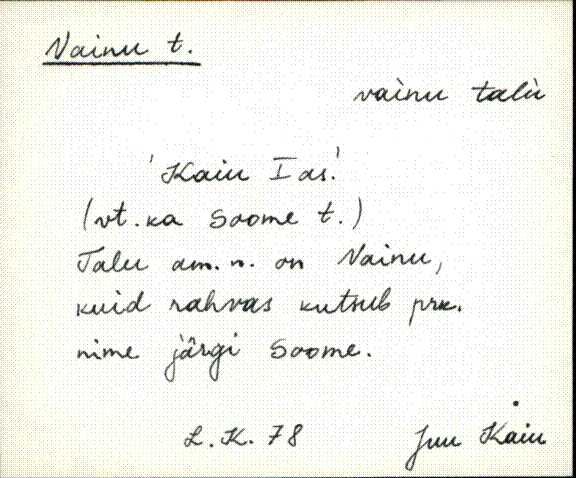 Vainu t.
vainu talu
'Kaiu I as.'
(vt. ka Soome t.)
Talu am. n. on Vainu,
kuid rahvas kutsub prk.
nime järgi Soome.
L. K. 78 Juu Kaiu